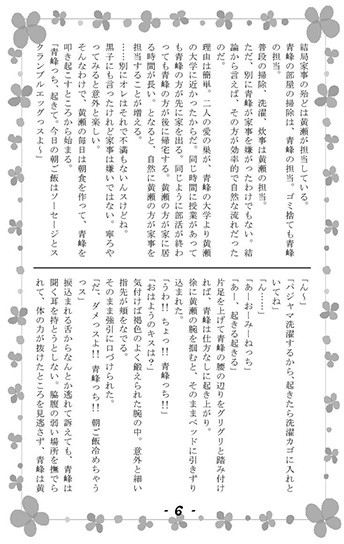 結局家事の殆どは黄瀬が担当している。
青峰の部屋の掃除は、青峰の担当。ゴミ捨ても青峰
の担当。
普段の掃除、洗濯、炊事は黄瀬の担当。
ただ、別に青峰が家事を嫌がったわけでもない。結
論から言えば、その方が効率的で自然な流れだった
のだ。
理由は簡単。二人の愛の巣が、青峰の大学より黄瀬
の大学に近かったからだ。同じ時間に授業があって
も青峰の方が先に家を出る。同じように部活が終わ
っても青峰の方が後に帰宅する。黄瀬の方が家に居
る時間が長い。となると、自然に黄瀬の方が家事を
担当することが増える。
……別にオレはそれで不満もないんスけどね。
黒子にも言ったけれど家事は嫌いではない。寧ろや
ってみると意外と楽しい。
そんなわけで、黄瀬の毎日は朝食を作って、青峰を
叩き起こすところから始まる。
「青峰っち、起きて。今日の朝ご飯はソーセージとス
クランブルエッグっスよ〜」
「ん〜」
「パジャマ洗濯するから、起きたら洗濯カゴに入れと
いてね」
「ん……」
「あーおーみーねっち」
「あー、起きる起きる」
片足を上げて青峰の腰の辺りをグリグリと踏み付け
れば、青峰は仕方なしに起き上がり。
徐に黄瀬の腕を掴むと、そのままベッドに引きずり
込まれた。
「うわ!!ちょっ!!青峰っち!!」
「おはようのキスは?」
気付けば褐色のよく鍛えられた腕の中。意外と細い
指先が頬をなでる。
そのまま強引に口づけられた。
「だ、ダメっスよ!!青峰っち!!朝ご飯冷めちゃう
っス」
捩込まれる舌からなんとか逃れて訴えても、青峰は
聞く耳を持とうとしない。脇腹の弱い場所を撫でら
れて、体の力が抜けたところを見逃さず、青峰は黄
- 6 -